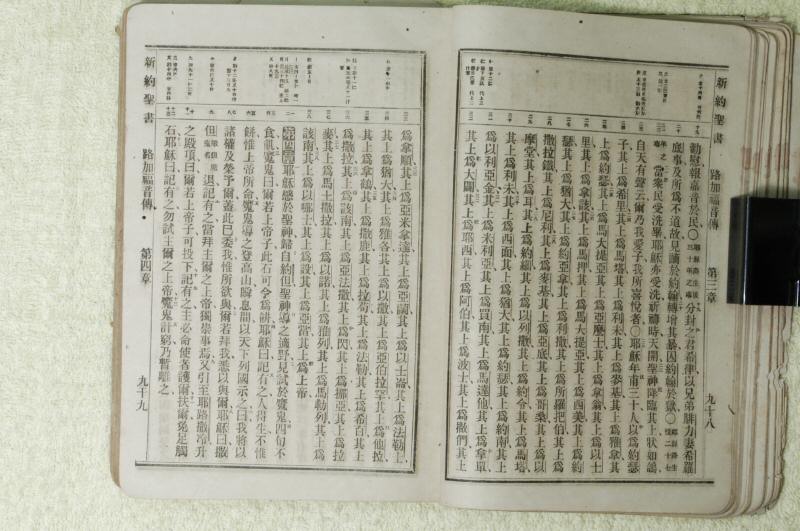 新約聖書 路加福音傳 第三章 九十八
勸慰報嘉音於民○耶穌降生後三十年事分封之君希律以兄弟腓力妻希羅
底事及所爲不道故見讁於約翰轉增其慝因約翰於獄○耶穌降生後二十七
年之事當衆民受洗畢耶穌亦受洗祈禱時天開聖神降臨其上狀如鴿
自天有聲云爾乃我愛子我所喜悅者○耶穌年甫三十人以爲約瑟
子其上爲希里其上爲馬塔其上爲利未其上爲麥基其上爲雅拿其
上爲約瑟其上爲馬大提亞其上爲亞麽士其上爲拿翁其上爲以士
里其上爲拿該其上爲馬押其上爲馬大提亞其上爲西美其上爲約
瑟其上爲猶大其上爲約亞拿其上爲利撒其上爲所羅把伯其上爲
撒拉鐵其上爲尼利其上爲麥基其上爲亞底其上爲哥桑其上爲以
摩堂其上爲耳其上爲約細其上爲以列撒其上爲約令其上爲馬塔
其上爲利未其上爲西面其上爲猶大其上爲約瑟其上爲約南其上
爲以利亞金其上爲米利亞其上爲買南其上爲馬達他其上爲拿單
其上爲大闢其上爲耶西其上爲阿伯其上爲波士其上爲撒們其上
爲拿順其上爲亞米拿達其上爲亞蘭其上爲以士崙其上爲法勒士
其上爲猶大其上爲雅各其上爲以撒其上爲亞伯拉罕其上爲他拉
其上爲拿鶴其上爲撒鹿其上爲拉苟其上爲法勒其上爲希百其上
爲撒拉其上爲該南其上爲亞法撒其上爲閃其上爲挪亞其上爲拉
麥其上爲馬土撒拉其上爲以諾其上爲雅列其上爲馬勒列其上爲
該南其上爲以哪士其上爲設其上爲亞當其上爲上帝
第四章耶穌感於聖神歸自約但聖神導之適野見試於魔鬼四旬不
食飢魔鬼曰爾若上帝子此石可令爲餅耶穌曰記有之人得生不惟
餅惟上帝所命魔鬼導之登高山瞬息間以天下列國示之曰我將以
諸權及榮予爾蓋此已委我惟所欲與爾若拜我悉以與爾耶穌曰撒
但退記有之當拜主爾之上帝獨崇事焉又引至耶路撒冷升
之殿頂曰爾若上帝子可投下記有之主必命使者護爾扶爾免足觸
石耶穌曰記有之勿試主爾之上帝魔鬼計窮乃暫離之
新約聖書 路加福音傳 第四章 九十九